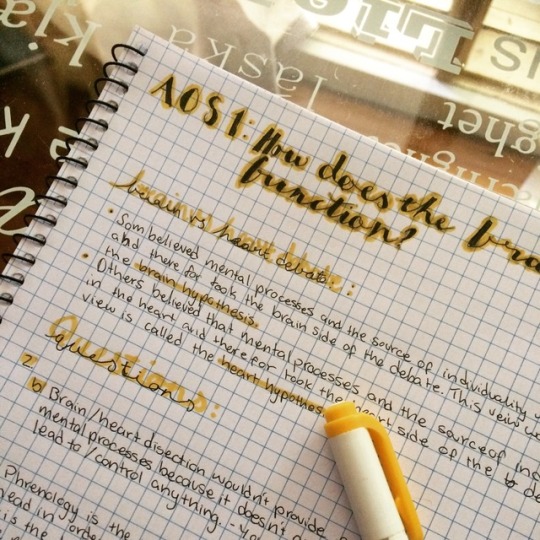 AOS 1: How does the bra
function?
brain vs heart debate:
• Som believed mental processes and the source of individuality
and there for took the brain side of the debate. This veiw
the brain hypothesis.
• Others believed that mental processes and the source of
in the heart and there for took the heart side of the de
view is called the heart hypothes
Questions:
2.
b) Brain/heart disection wouldn't provide
mental processes because it doesn't
lead to/control anything. -
Phrenology is the
head in order
is the
Läska
kja
k
LIEF
US
ghet